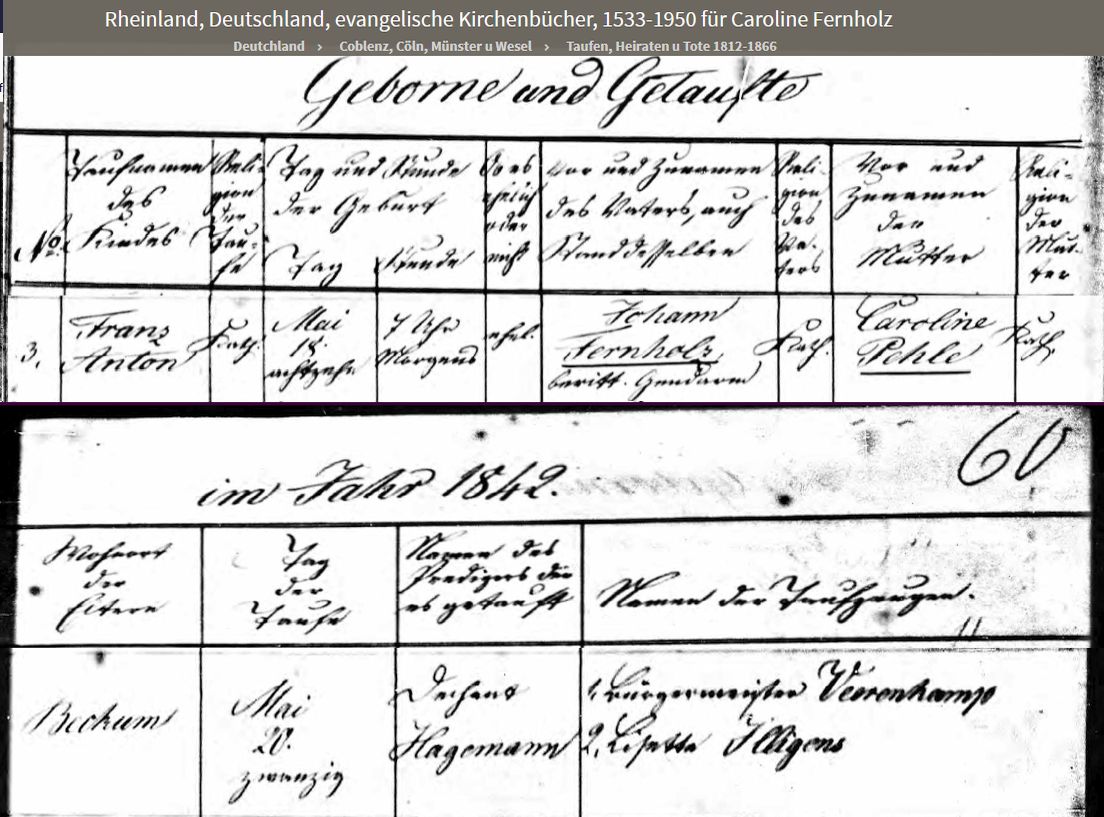 Rheinland, Deutschland, evangelische Kirchenbücher, 1533-1950 für Caroline Fernholz
Deutchland › Coblenz, Cöln, Münster u Wesel › Taufen, Heiraten u Tote 1812-1866
Geborne und Getaufte
No.
Taufnamen
des
Kindes
Reli-
gion
der
Täu-
fe
Tag und Stunde
der Geburt
Tag
Stunde
Ob es
ehelich
oder
nicht
Vor und Zunamen
des Vaters, auch
Stand desselben
Reli-
gion
des
Va-
ters
Vor und
Zunamen
der
Mutter
Reli-
gion
der
Mut-
ter
3.
Franz
Anton
Kath.
Mai
18.
achtzehn
7 Uhr
Morgens
ehel.
Johann
Fernholz
beritt. Gendarm
Kath.
Caroline
Pehle
Kath.
60
im Jahr 1842.
Wohnort
der
Eltern
Tag
der
Taufe
Namen des
Predigers der
es getauft
Namen der Taufzeugen.
Beckum
Mai
20.
zwanzig
Dechant
Hagemann
1. Bürgermeister Veerenkamp
2. Lisette Illigens